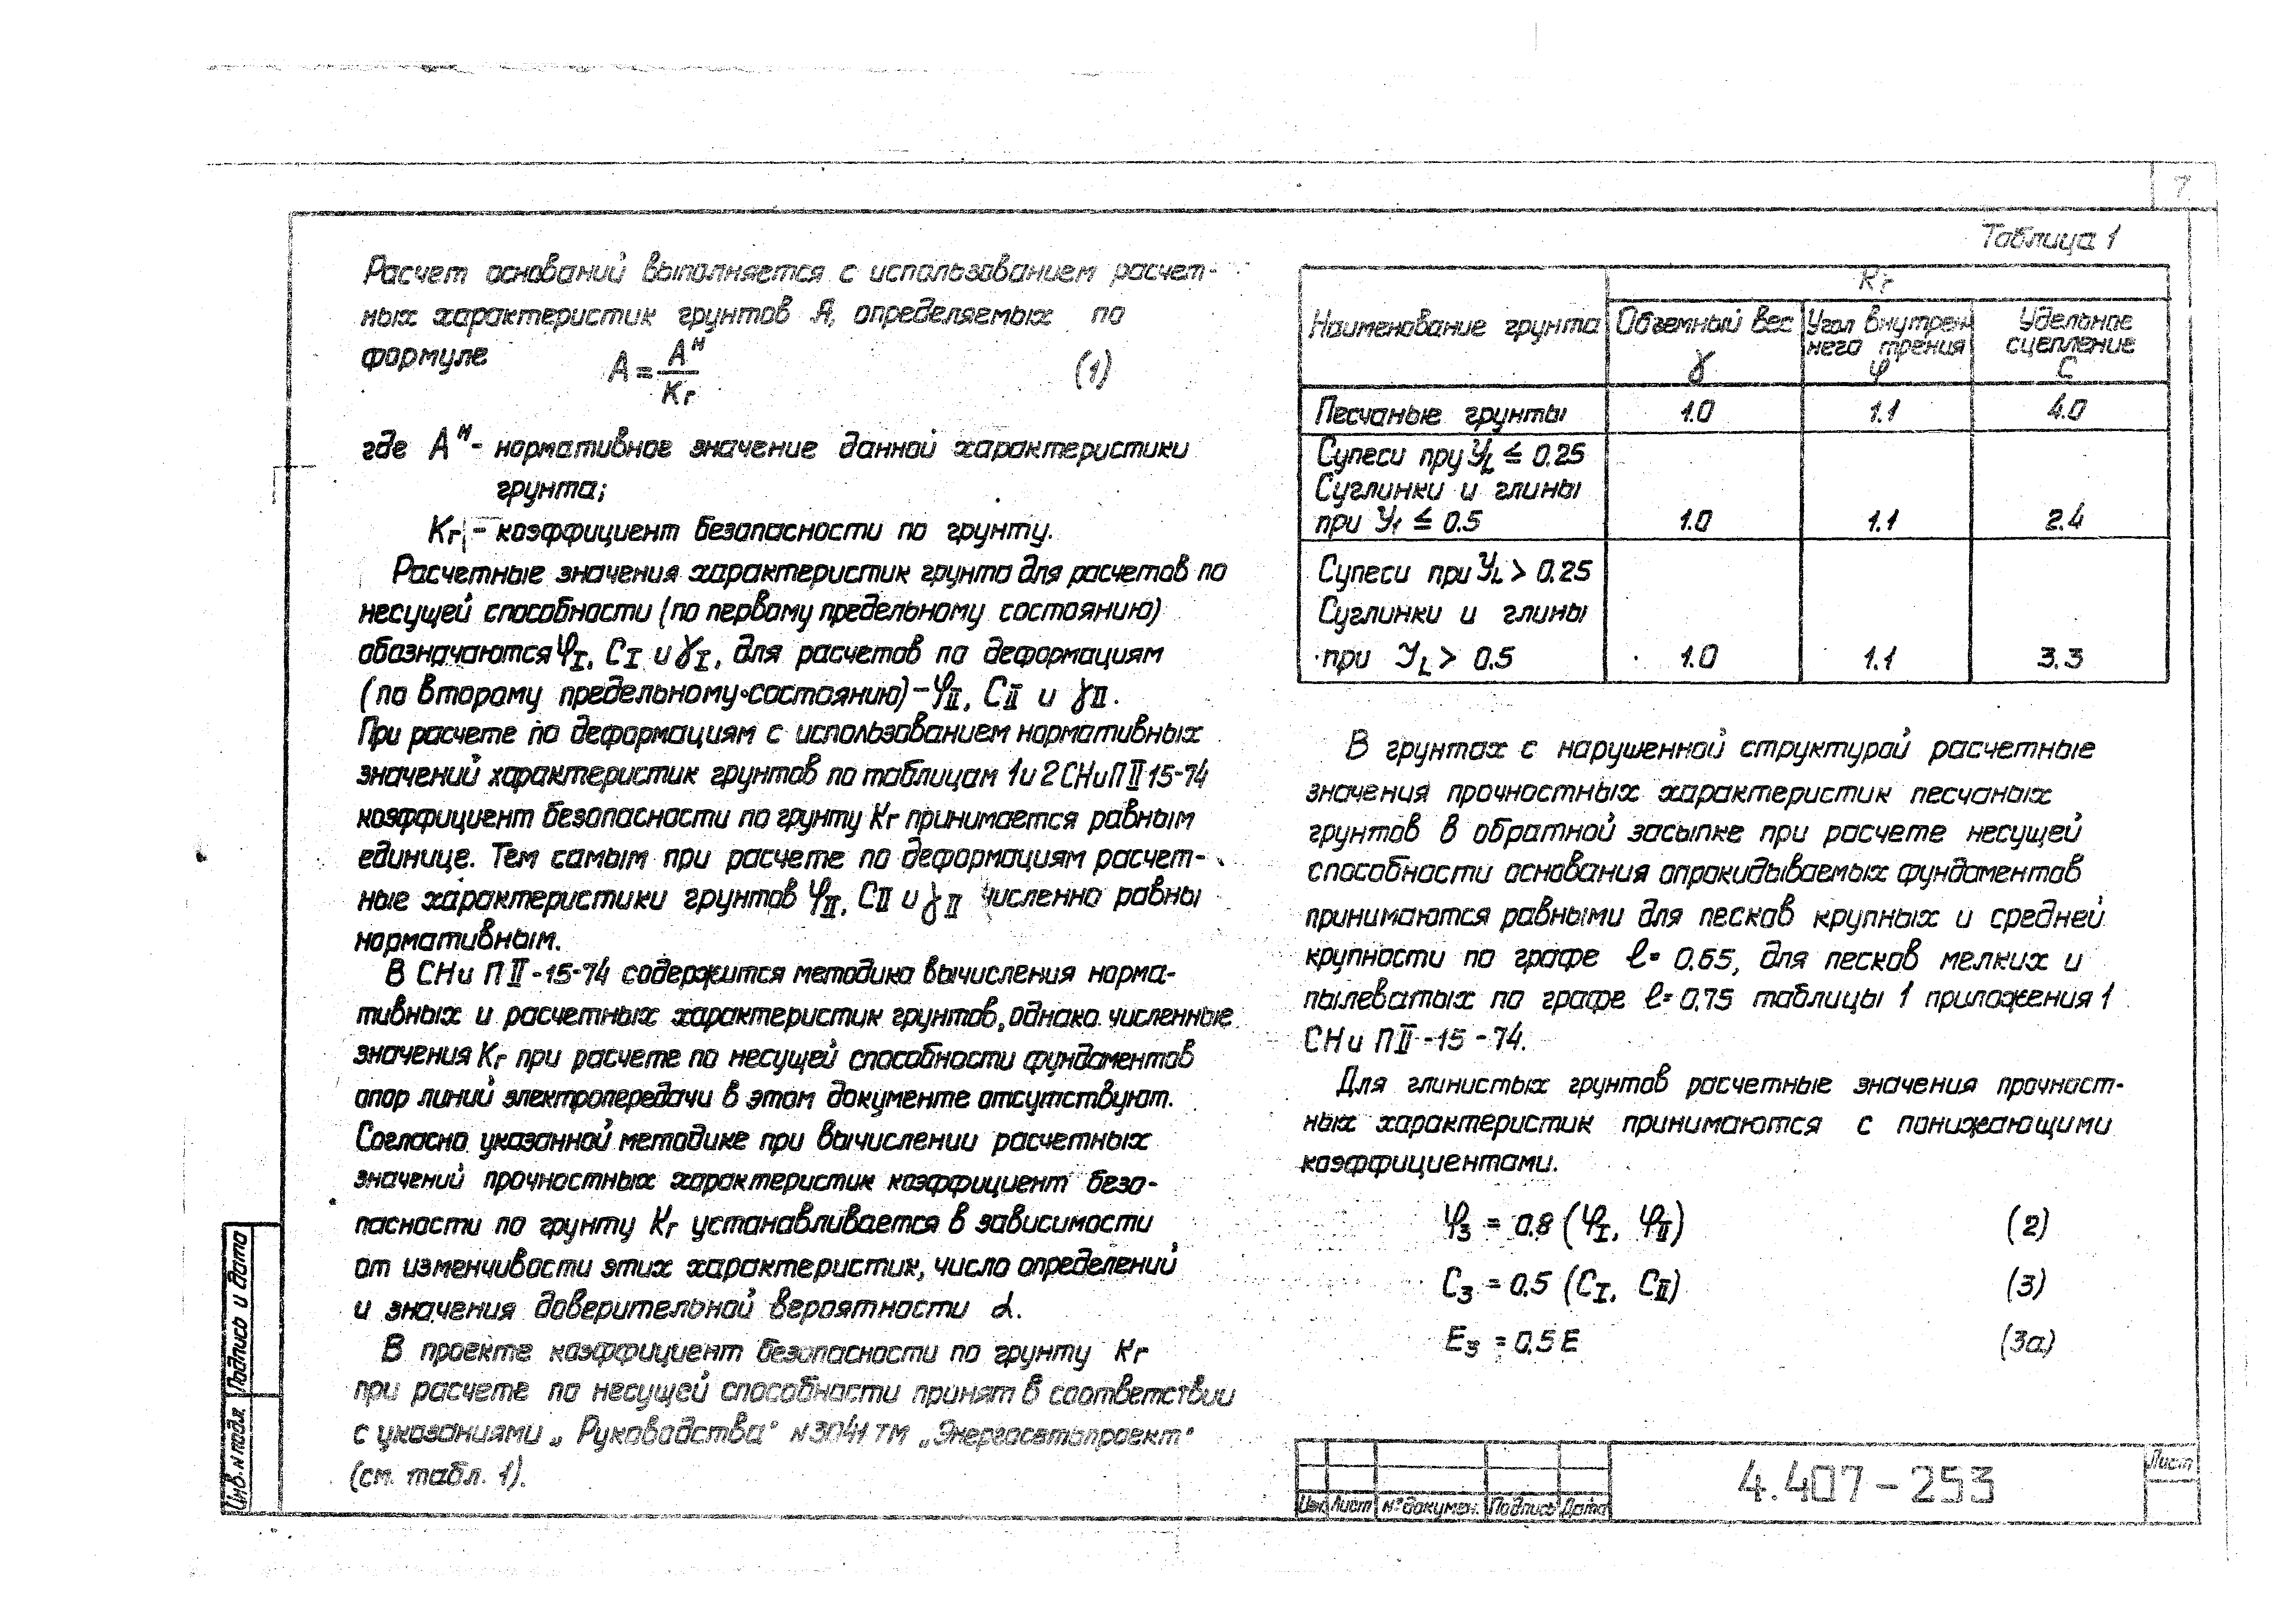 7
Расчет оснований выполняется с использованием расчет-
ных характеристик грунтов А, определяемых по
формуле
A = Aᴴ / Kг (1)
где Aᴴ - нормативное значение данной характеристики
грунта;
Kг - коэффициент безопасности по грунту.
Расчетные значения характеристик грунта для расчетов по
несущей способности (по первому предельному состоянию)
обозначаются φI, CI и γI, для расчетов по деформациям
(по второму предельному состоянию) - φII, CII и γII.
При расчете по деформациям с использованием нормативных
значений характеристик грунтов по таблицам 1 и 2 СНиП II 15-74
коэффициент безопасности по грунту Kг принимается равным
единице. Тем самым при расчете по деформациям расчет-
ные характеристики грунтов φII, CII и γII численно равны
нормативным.
В СНиП II-15-74 содержится методика вычисления норма-
тивных и расчетных характеристик грунтов, однако численные
значения Kг при расчете по несущей способности фундаментов
опор линий электропередачи в этом документе отсутствуют.
Согласно указанной методике при вычислении расчетных
значений прочностных характеристик коэффициент безо-
пасности по грунту Kг устанавливается в зависимости
от изменчивости этих характеристик, число определений
и значения доверительной вероятности α.
В проекте коэффициент безопасности по грунту Kг
при расчете по несущей способности принят в соответствии
с указаниями „Руководства" N3041 ТМ „Энергосетьпроект"
(см. табл. 1).
Таблица 1
Наименование грунта
Kг
Объемный вес γ
Угол внутрен-
него трения φ
Удельное
сцепление C
Песчаные грунты 1.0 1.1 4.0
Супеси при YL ≤ 0.25
Суглинки и глины
при Y1 ≤ 0.5 1.0 1.1 2.4
Супеси при YL > 0.25
Суглинки и глины
при YL > 0.5 1.0 1.1 3.3
В грунтах с нарушенной структурой расчетные
значения прочностных характеристик песчаных
грунтов в обратной засыпке при расчете несущей
способности основания опрокидываемых фундаментов
принимаются равными для песков крупных и средней
крупности по графе ℓ = 0.65, для песков мелких и
пылеватых по графе ℓ = 0.75 таблицы 1 приложения 1
СНиП II-15-74.
Для глинистых грунтов расчетные значения прочност-
ных характеристик принимаются с понижающими
коэффициентами.
φ3 = 0.8 (φI, φII) (2)
C3 = 0.5 (CI, CII) (3)
E3 = 0.5 E (3а)
Инв. N подл. Подпись и дата
Изм Лист N° докумен. Подпись Дата
4.407-253
Лист